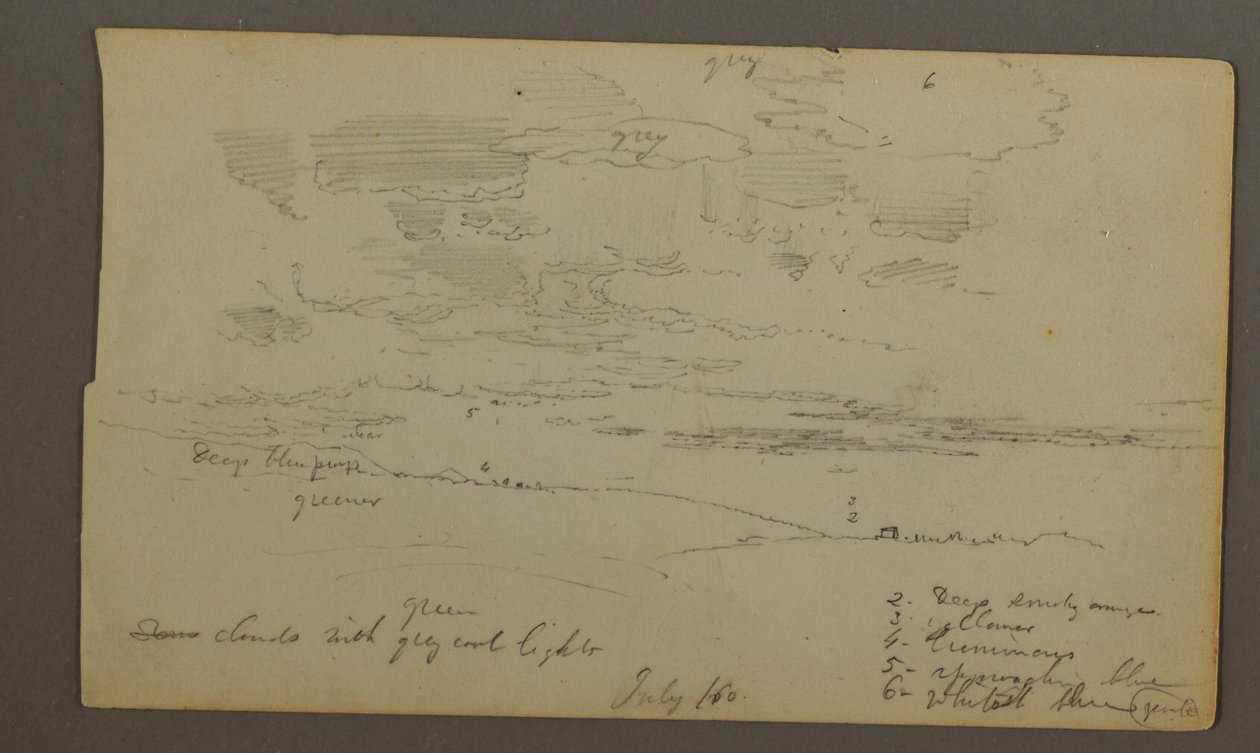 grey
6
grey
5
Deep blue purp
4
greener
3
2
green
clouds with grey cool lights
2- Deep smoky orange
3- yellower
4- Luminous
5- approaching blue
6- whitest blue
July /60.